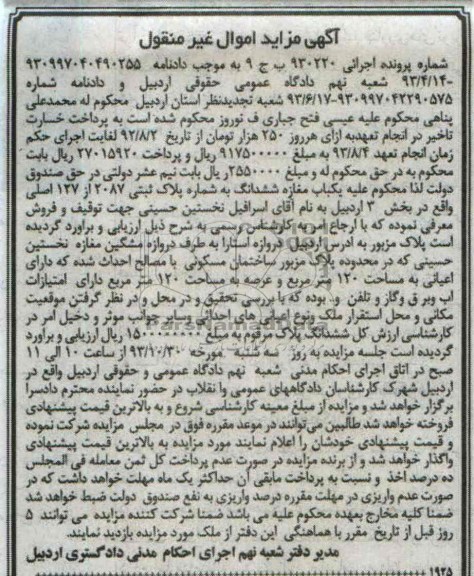 آگهی مزاید اموال غیر منقول
شماره پرونده اجرائی ۹۳۰۲۲۰ ب ج ۹ به موجب دادنامه ۹۳۰۹۹۷۰۴۰۴۹۰۲۵۵
-۹۳/۴/۱۴ شعبه نهم دادگاه عمومی حقوقی اردبیل و دادنامه شماره
۹۳/۶/۱۷-۹۳۰۹۹۷۰۴۲۲۹۰۵۷۵ شعبه تجدیدنظر استان اردبیل محکوم له محمدعلی
پناهی محکوم علیه عیسی فتح جباری ف نوروز محکوم شده است به پرداخت خسارت
تاخیر در انجام تعهدبه ازای هرروز ۲۵۰ هزار تومان از تاریخ ۹۲/۸/۲ لغایت اجرای حکم
زمان انجام تعهد ۹۳/۸/۴ به مبلغ ۹۱۷۵۰۰۰۰۰ ریال و پرداخت ۲۷۰۱۵۹۲۰ ریال بابت
محکوم به در حق محکوم له و مبلغ ۲۵۵۰۰۰۰ ریال بابت نیم عشر دولتی در حق صندوق
دولت لذا محکوم علیه یکباب مغازه ششدانگ به شماره پلاک ثبتی ۲۰۸۷ از ۱۲۷ اصلی
واقع در بخش ۳ اردبیل به نام آقای اسرافیل نخستین حسینی جهت توقیف و فروش
معرفی نموده که با ارجاع امر به کارشناس رسمی به شرح ذیل ارزیابی و براورد گردیده
است پلاک مزبور به ادرس اردبیل دروازه استارا به طرف دروازه مشگین مغازه نخستین
حسینی که در محدوده پلاک مزبور ساختمان مسکونی با مصالح احداث شده که دارای
اعیانی به مساحت ۱۲۰ متر مربع و عرصه به مساحت ۱۲۰ متر مربع دارای امتیازات
اب وبر ق وگاز و تلفن و.. بوده که با بررسی تحقیق و در محل و در نظر گرفتن موقعیت
مکانی و محل استقرار ملک ونوع اعیانی های احداثی وسایر جوانب موثر و دخیل امر در
کارشناسی ارزش کل ششدانگ پلاک مرقوم به مبلغ ریال ارزیابی و براورد
گردیده است جلسه مزایده به روز سه شنبه مورخه ۹۳/۱۰/۳۰ از ساعت ۱۰ الی ۱۱
صبح در اتاق اجرای احکام مدنی شعبه نهم دادگاه عمومی و حقوقی اردبیل واقع در
اردبیل شهرک کارشناسان دادگاههای عمومی وا نقلاب در حضور نماینده محترم دادسرا
برگزار خواهد شد و مزایده از مبلغ معینه کارشناسی شروع و به بالاترین قیمت پیشنهادی
فروخته خواهد شد طالبین می‌توانند در موعد مقرره فوق در مجلس مزایده شرکت نموده
و قیمت پیشنهادی خودشان را اعلام نمایند مورد مزایده به بالاترین قیمت پیشنهادی
واگذار خواهد شد و از برنده مزایده در صورت عدم پرداخت کل ثمن معامله فی المجلس
ده درصد اخذ و نسبت به پرداخت مابقی آن حداکثر یک ماه مهلت خواهد داشت که در
صورت عدم واریزی در مهلت مقرره درصد واریزی به نفع صندوق دولت ضبط خواهد شد
ضمنا کلیه مخارج بعهده محکوم علیه می باشد ضمنا شرکت کننده مزایده می توانند ۵
روز قبل از تاریخ مقرر با هماهنگی این دفتر از ملک مورد مزایده بازدید نمایند.
مدیر دفتر شعبه نهم اجرای احکام مدنی دادگستری اردبیل
۱۹۲۵